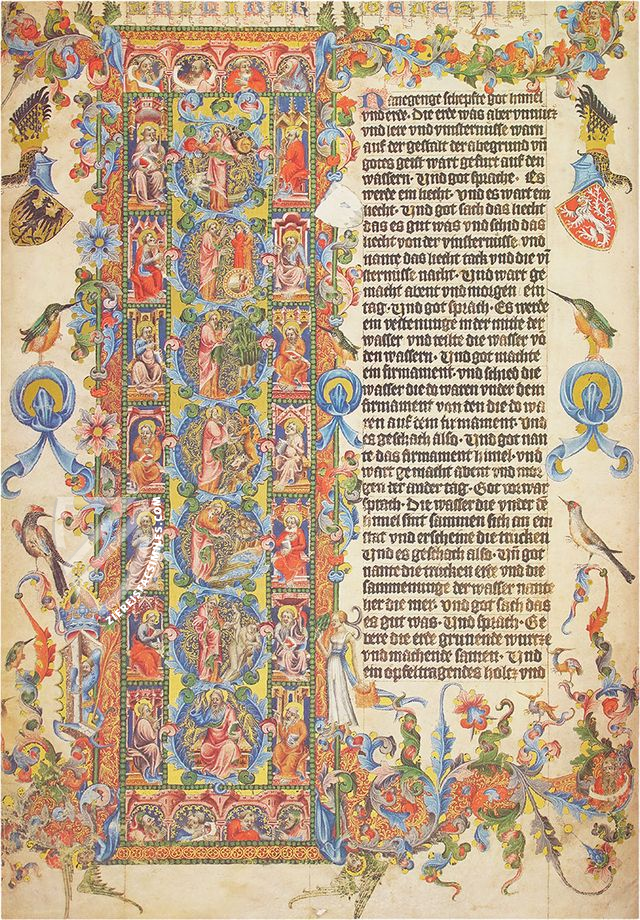 Nanegenge schepfte got himel
vnd erde. Die erde was aber vnnucz
vnd lere vnd vinsternusse warn
auf der gestalt der abegrund vn̄
gotes geist wart gefurt auf den
wassern. Vnd got sprache. Es
werde ein liecht. vnd es wart ein
liecht. Vnd got sach das liecht
das es gut was vnd schid das
liecht von der vinsternusse vnd
nante das liecht tack vnd die vī
sternusse nacht. Vnd wart ge
macht abent vnd morgen ein
tag. Vnd got sprach. Es werde
ein vestenunge in der mitte der
wasser vnd teilte die wasser vō
den wassern. Vnd got machte
ein firmament. vnd schied die
wasser die do waren vnder dem
firmament von den die do wa
ren auf dem firmament. Vnd
es geschach also. Vnd got nan
te das firmament himel. vnd
wart gemacht abent vnd mor
gen der ander tag. Got vorwar
sprach. Die wasser die vnder dē
himel sint sammen sich an ein
stat vnd erscheine die trucken
Vnd es geschach also. Vn̄ got
nante die trucken erde vnd die
sammenunge der wasser nante
her die mer. vnd got sach das
es gut was. Vnd sprach. Ge
bere die erde grunende wurcze
vnd machende samen. Vnd
ein opfeltragendes holcz vnd
ZIEREIS FACSIMILES.COM